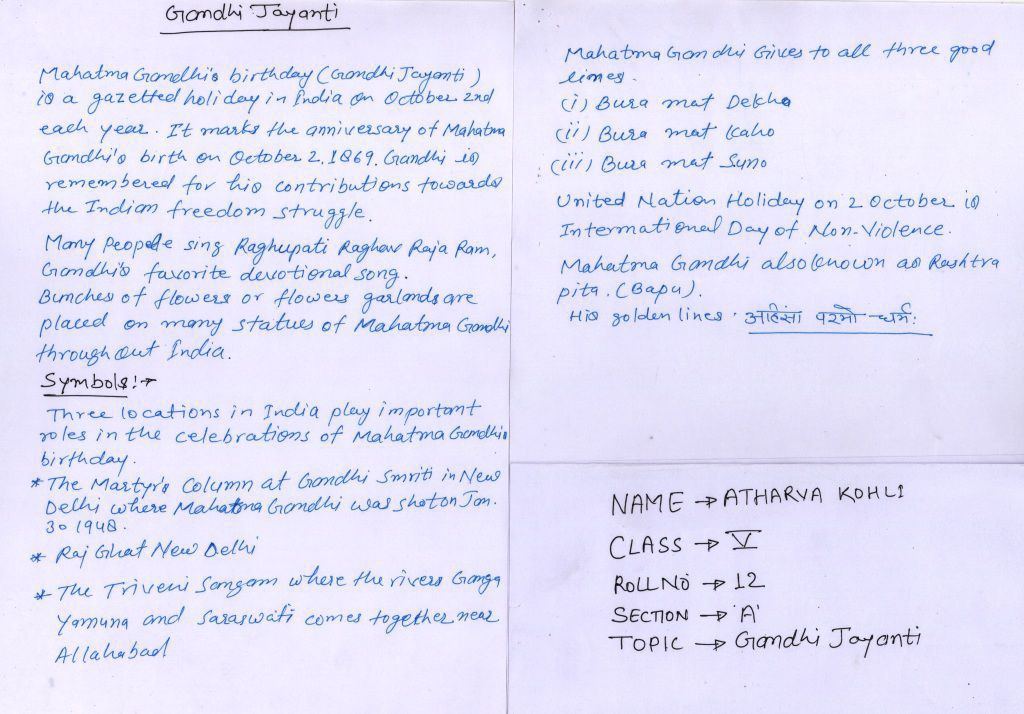 Gandhi Jayanti
Mahatma Gandhi's birthday (Gandhi Jayanti)
is a gazetted holiday in India on October 2nd
each year. It marks the anniversary of Mahatma
Gandhi's birth on October 2, 1869. Gandhi is
remembered for his contributions towards
the Indian freedom struggle.
Many People sing Raghupati Raghav Raja Ram,
Gandhi's favorite devotional song.
Bunches of flowers or flowers garlands are
placed on many statues of Mahatma Gandhi
throughout India.
Symbols:→
Three locations in India play important
roles in the celebrations of Mahatma Gandhi's
birthday.
* The Martyr's Column at Gandhi Smriti in New
Delhi where Mahatma Gandhi was shot on Jan.
30 1948.
* Raj Ghat New Delhi
* The Triveni Sangam where the rivers Ganga
Yamuna and Saraswati comes together near
Allahabad
Mahatma Gandhi Gives to all three good
limes.
(i) Bura mat Dekho
(ii) Bura mat Kaho
(iii) Bura mat Suno
United Nation Holiday on 2 October is
International Day of Non-Violence.
Mahatma Gandhi also known as Rashtra
pita. (Bapu).
His golden lines. अहिंसा परमो धर्म:
NAME → ATHARVA KOHLI
CLASS → V
ROLL NO → 12
SECTION → 'A'
TOPIC → Gandhi Jayanti